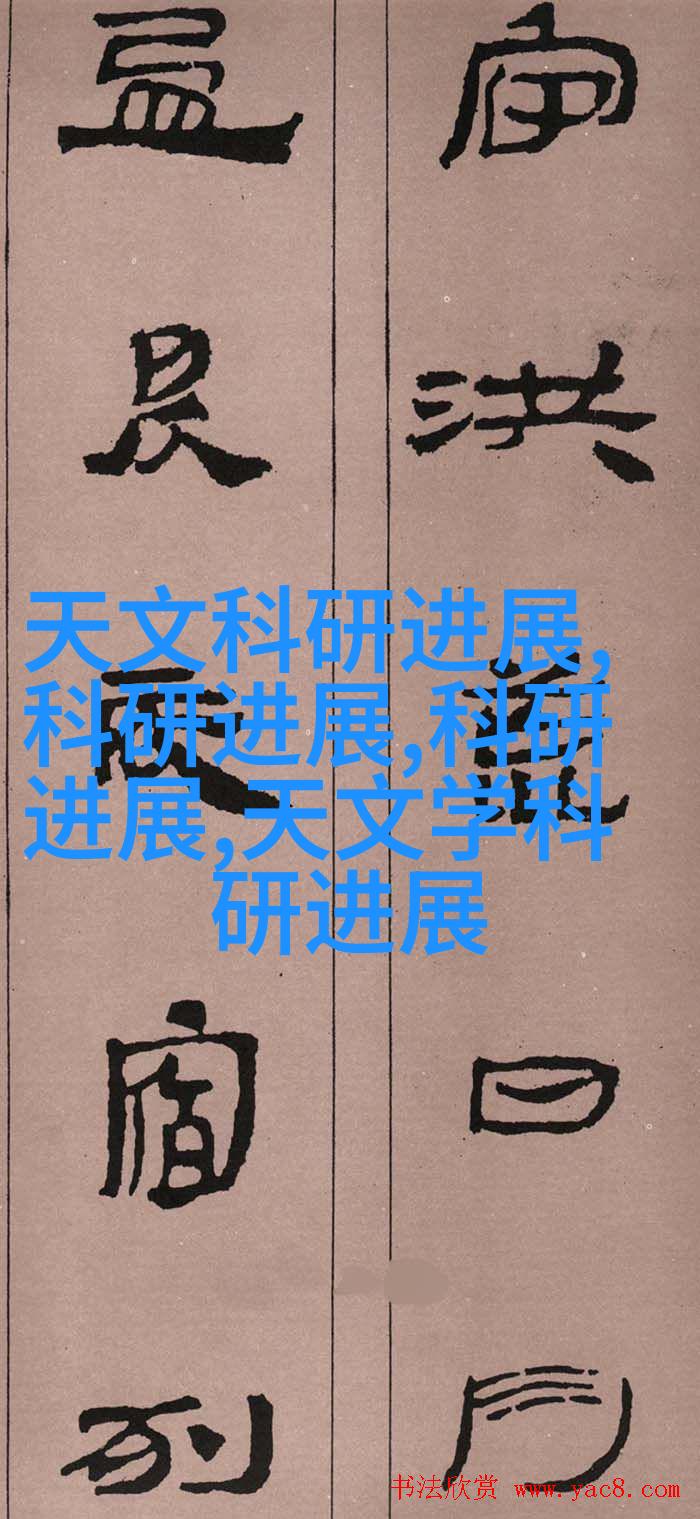 宙洪荒日月
盈昃辰宿列
天文科研进展,
科研进展,科研
进展,天文学科
研进展
书法欣赏 www.yac8.com